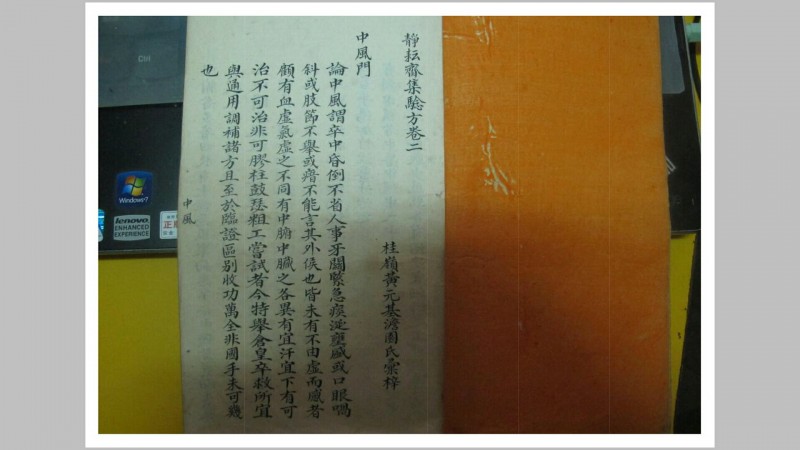 靜耘齋集驗方卷二
桂嶺黃元基澹園氏彙梓
中風門
論中風謂卒中昏倒不省人事牙關緊急痰涎壅盛或口眼喎
斜或肢節不舉或瘖不能言其外侯也皆未有不由虛而感者
顧有血虛氣虛之不同有中腑中臟之各異有宜汗宜下有可
治不可治非可膠柱鼓瑟粗工嘗試者今特舉倉皇卒救所宜
與通用調補諸方且至於臨證區別收功萬全非國手未可幾
也
中風
Ctrl
Windows 7
lenovo
ENHANCED
EXPERIENCE
正